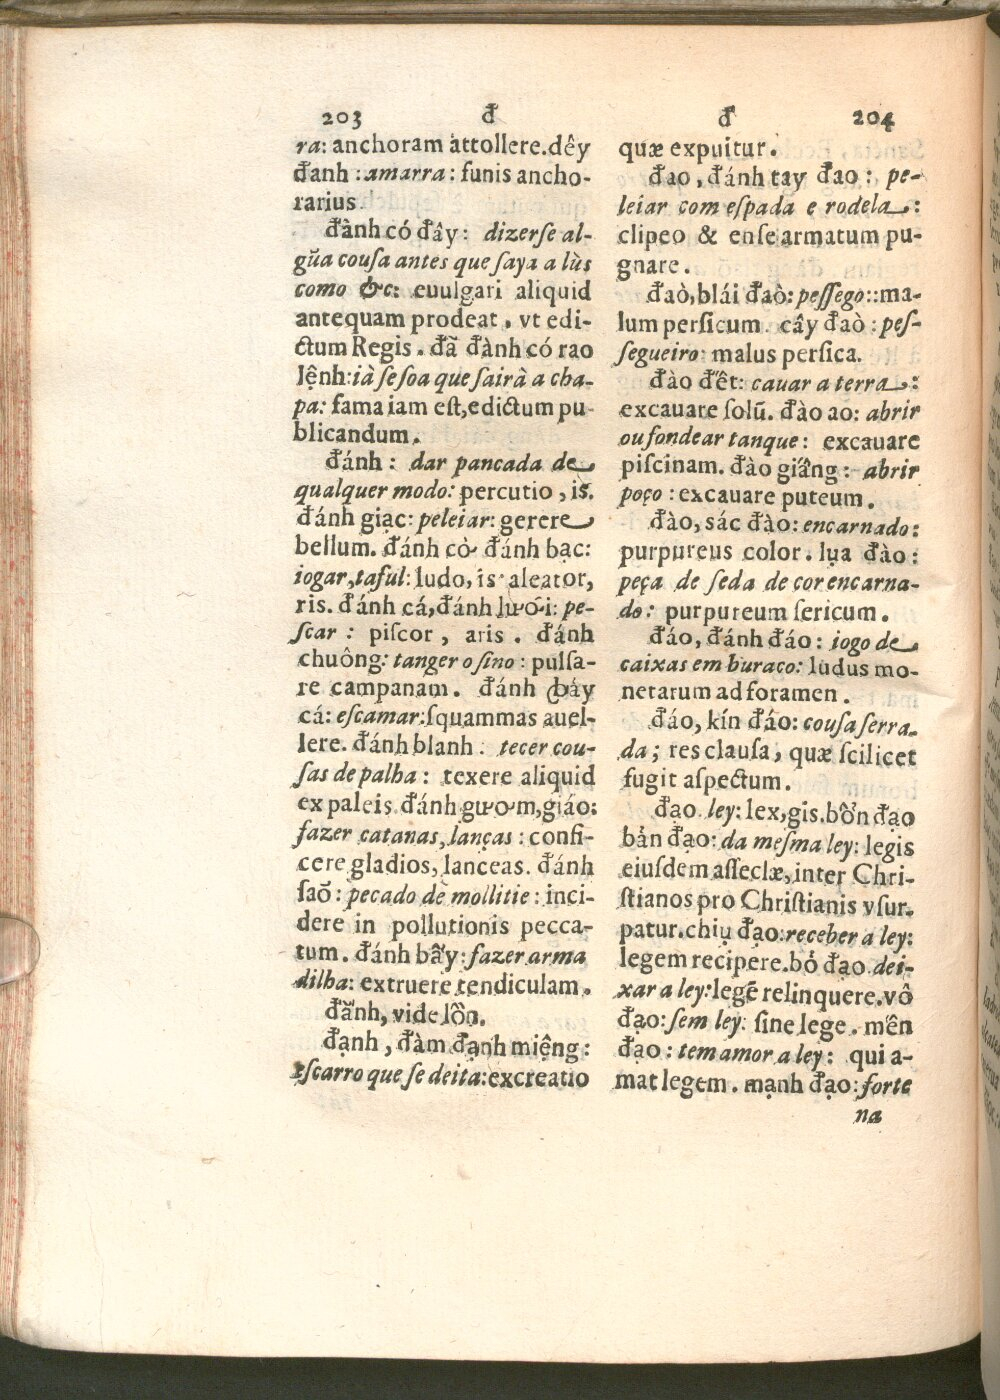 203 đ
ra: anchoram attollere. dêy
đanh: amarra: funis ancho-
rarius
đành có đây: dizerſe al-
gũa couſa antes que ſaya a lùs
como &c: euulgari aliquid
antequam prodeat, vt edi-
ctum Regis. đã đành có rao
lệnh: ià ſe ſoa que ſairà a cha-
pa: fama iam eſt, edictum pu-
blicandum.
đánh: dar pancada de
qualquer modo: percutio, is.
đánh giạc: peleiar: gerere
bellum. đánh cờ đánh bạc:
iogar, taful: ludo, is aleator,
ris. đánh cá, đánh lưới: pe-
ſcar: piſcor, aris. đánh
chuông: tanger o ſino: pulſa-
re campanam. đánh ꞗảy
cá: eſcamar: ſquammas auel-
lere. đánh blanh: tecer cou-
ſas de palha: texere aliquid
ex paleis. đánh gươm, giáo:
fazer catanas, lanças: confi-
cere gladios, lanceas. đánh
ſaõ: pecado de mollitie: inci-
dere in pollutionis pecca-
tum. đánh bẫy: fazer arma
dilha: extruere tendiculam.
đãnh, vide lồn.
đạnh, đàm đạnh miệng:
eſcarro que ſe deita: excreatio
đ 204
quæ expuitur.
đao, đánh tay đao: pe-
leiar com eſpada e rodela:
clipeo & enſe armatum pu-
gnare.
đaò, blái đaò: peſſego:: ma-
lum perſicum. cây đaò: peſ-
ſegueiro: malus perſica.
đào đết: cauar a terra:
excauare ſolũ. đào ao: abrir
ou fondear tanque: excauare
piſcinam. đào giấng: abrir
poço: excauare puteum.
đào, sác đào: encarnado:
purpureus color. lụa đào:
peça de ſeda de cor encarna-
do: purpureum ſericum.
đáo, đánh đáo: iogo de
caixas em buraco: ludus mo-
netarum ad foramen.
đáo, kín đáo: couſa ſerra-
da; res clauſa, quæ ſcilicet
fugit aſpectum.
đạo ley: lex, gis. bổn đạo
bản đạo: da meſma ley: legis
eiuſdem aſſeclæ, inter Chri-
ſtianos pro Chriſtianis vſur-
patur. chiụ đạo: receber a ley:
legem recipere. bỏ đạo dei-
xar a ley: legẽ relinquere. vô
đạo: ſem ley: ſine lege. mến
đạo: tem amor a ley: qui a-
mat legem. mạnh đạo: forte
na